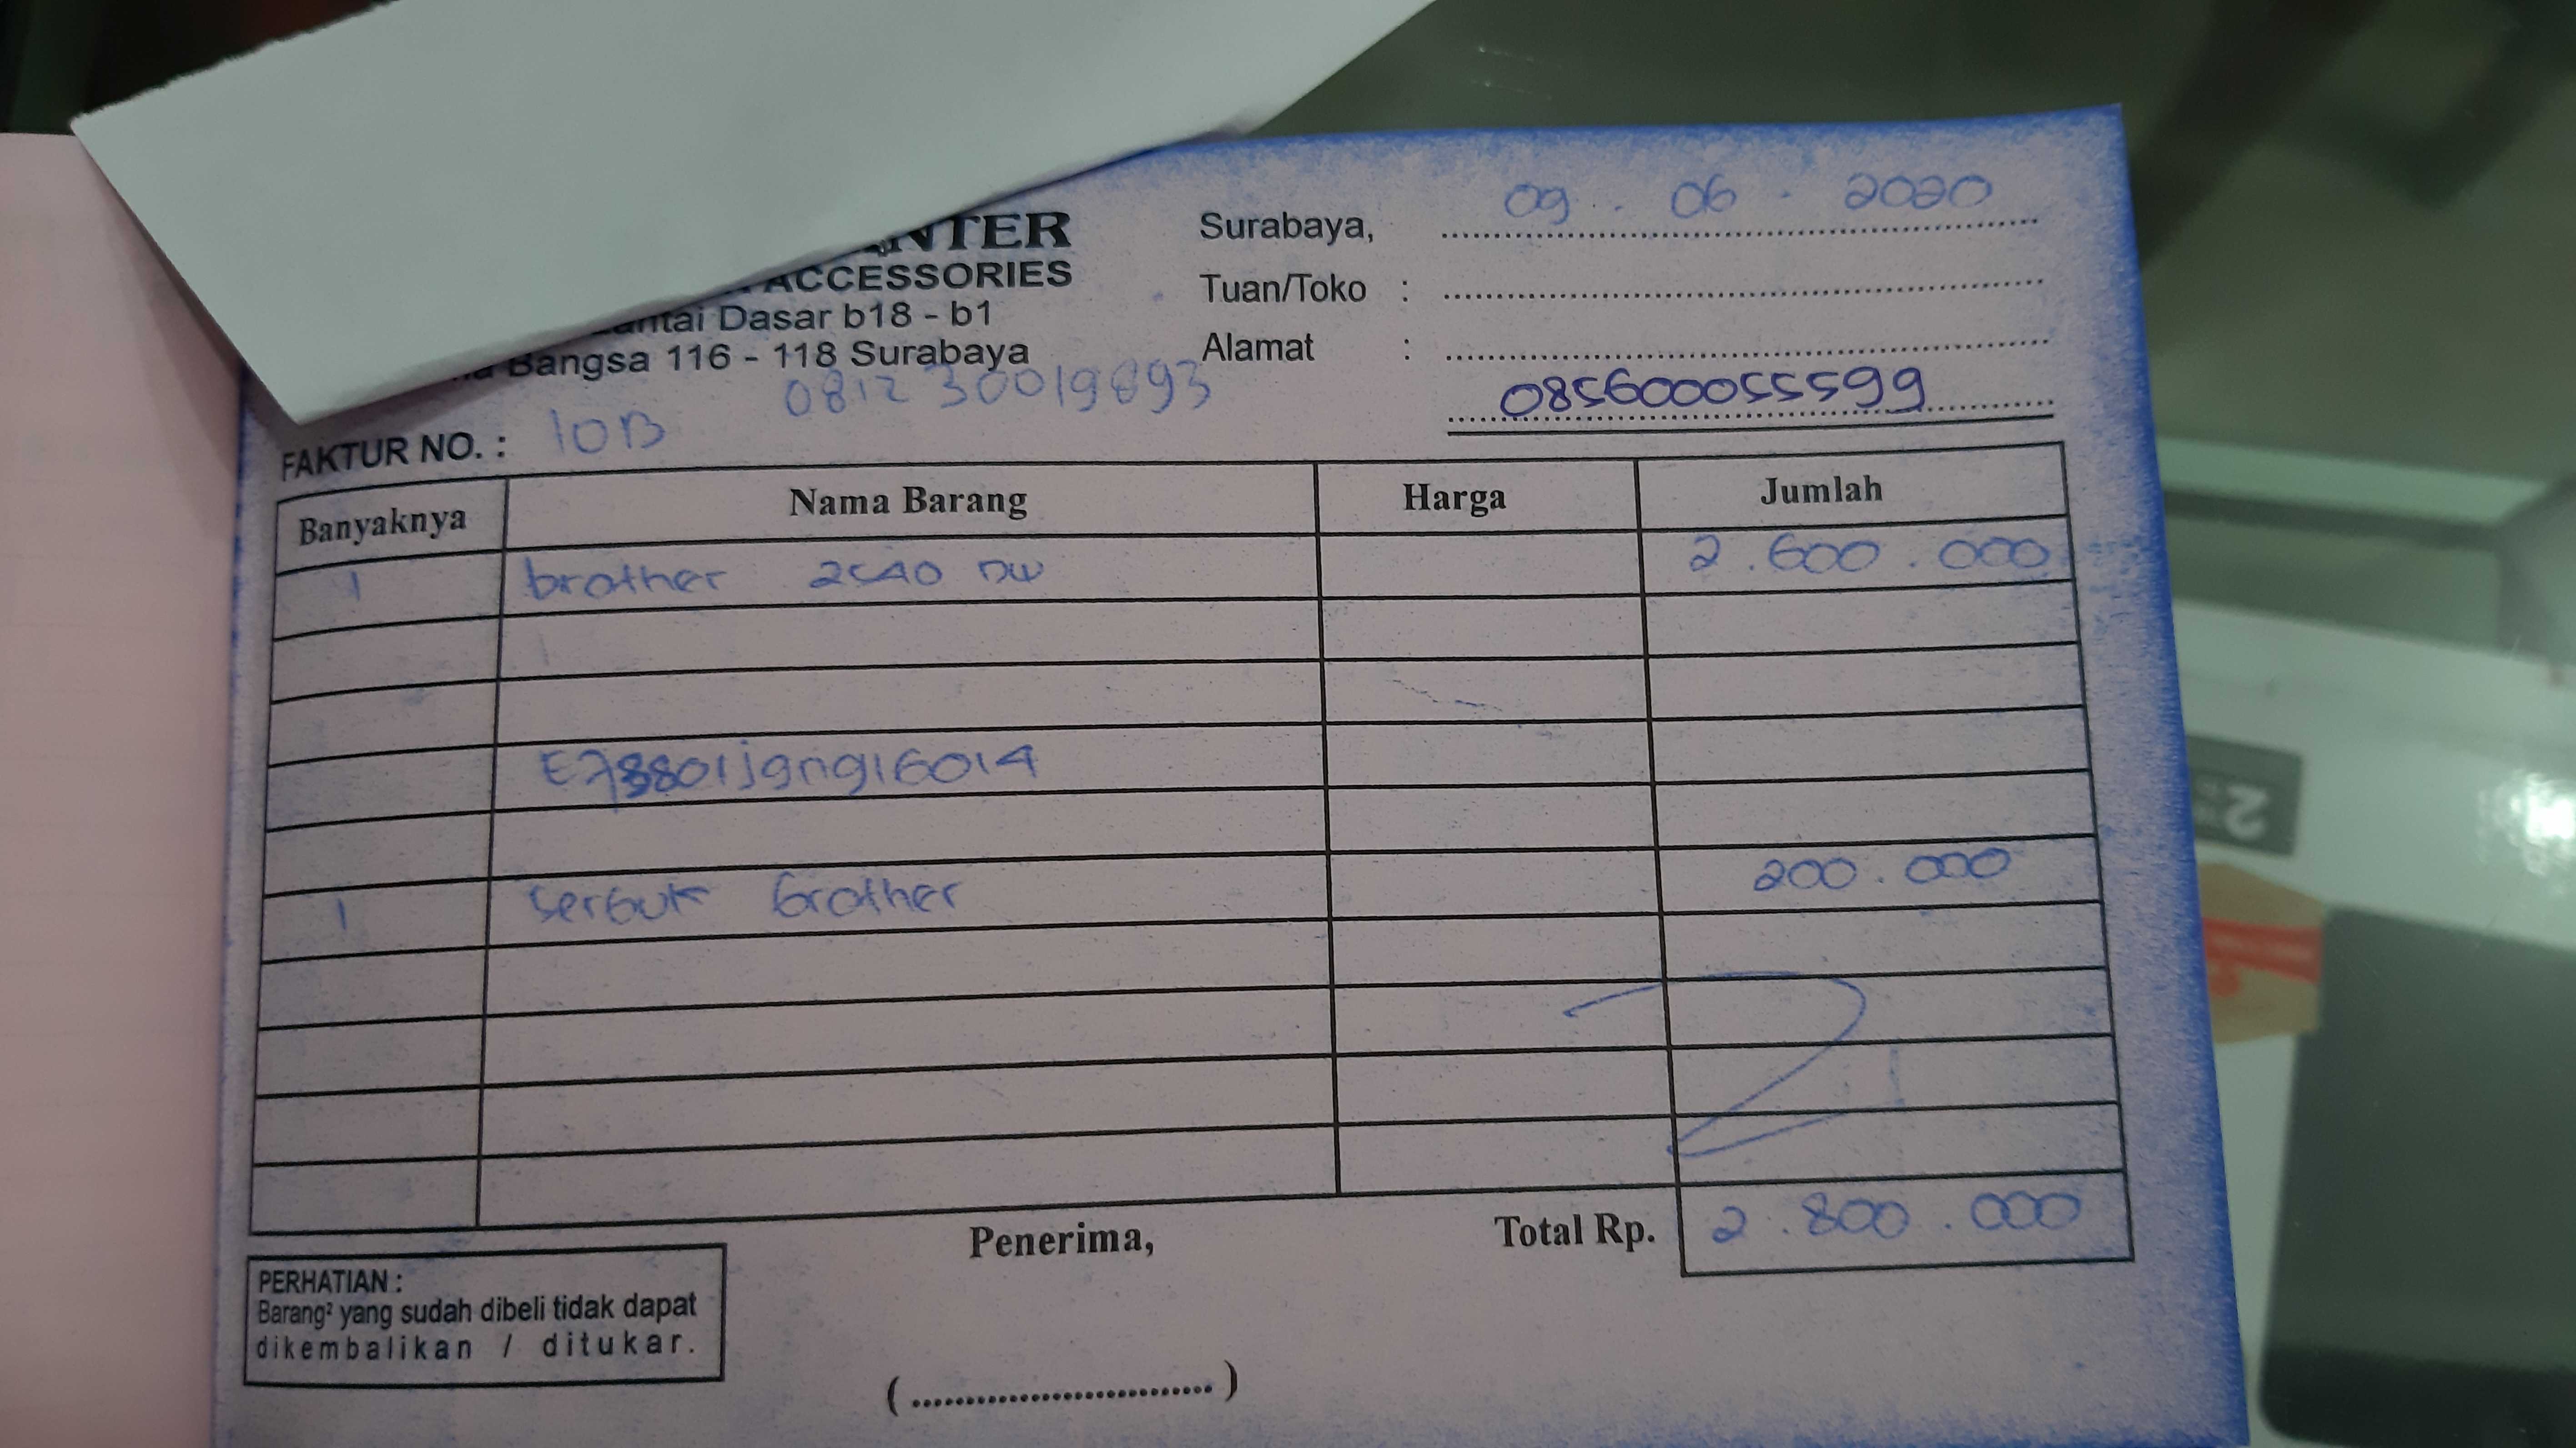 NTER
ACCESSORIES
Lantai Dasar b18 - b1
Bangsa 116 - 118 Surabaya
081230019893
FAKTUR NO. : 10B
Surabaya, 09 . 06 . 2020
Tuan/Toko :
Alamat :
Banyaknya Nama Barang Harga Jumlah
1 brother 2540 DW 2.600.000
1 serbuk brother 200.000
Penerima, Total Rp. 2.800.000
PERHATIAN :
Barang² yang sudah dibeli tidak dapat
dikembalikan / ditukar.
(............................)
2